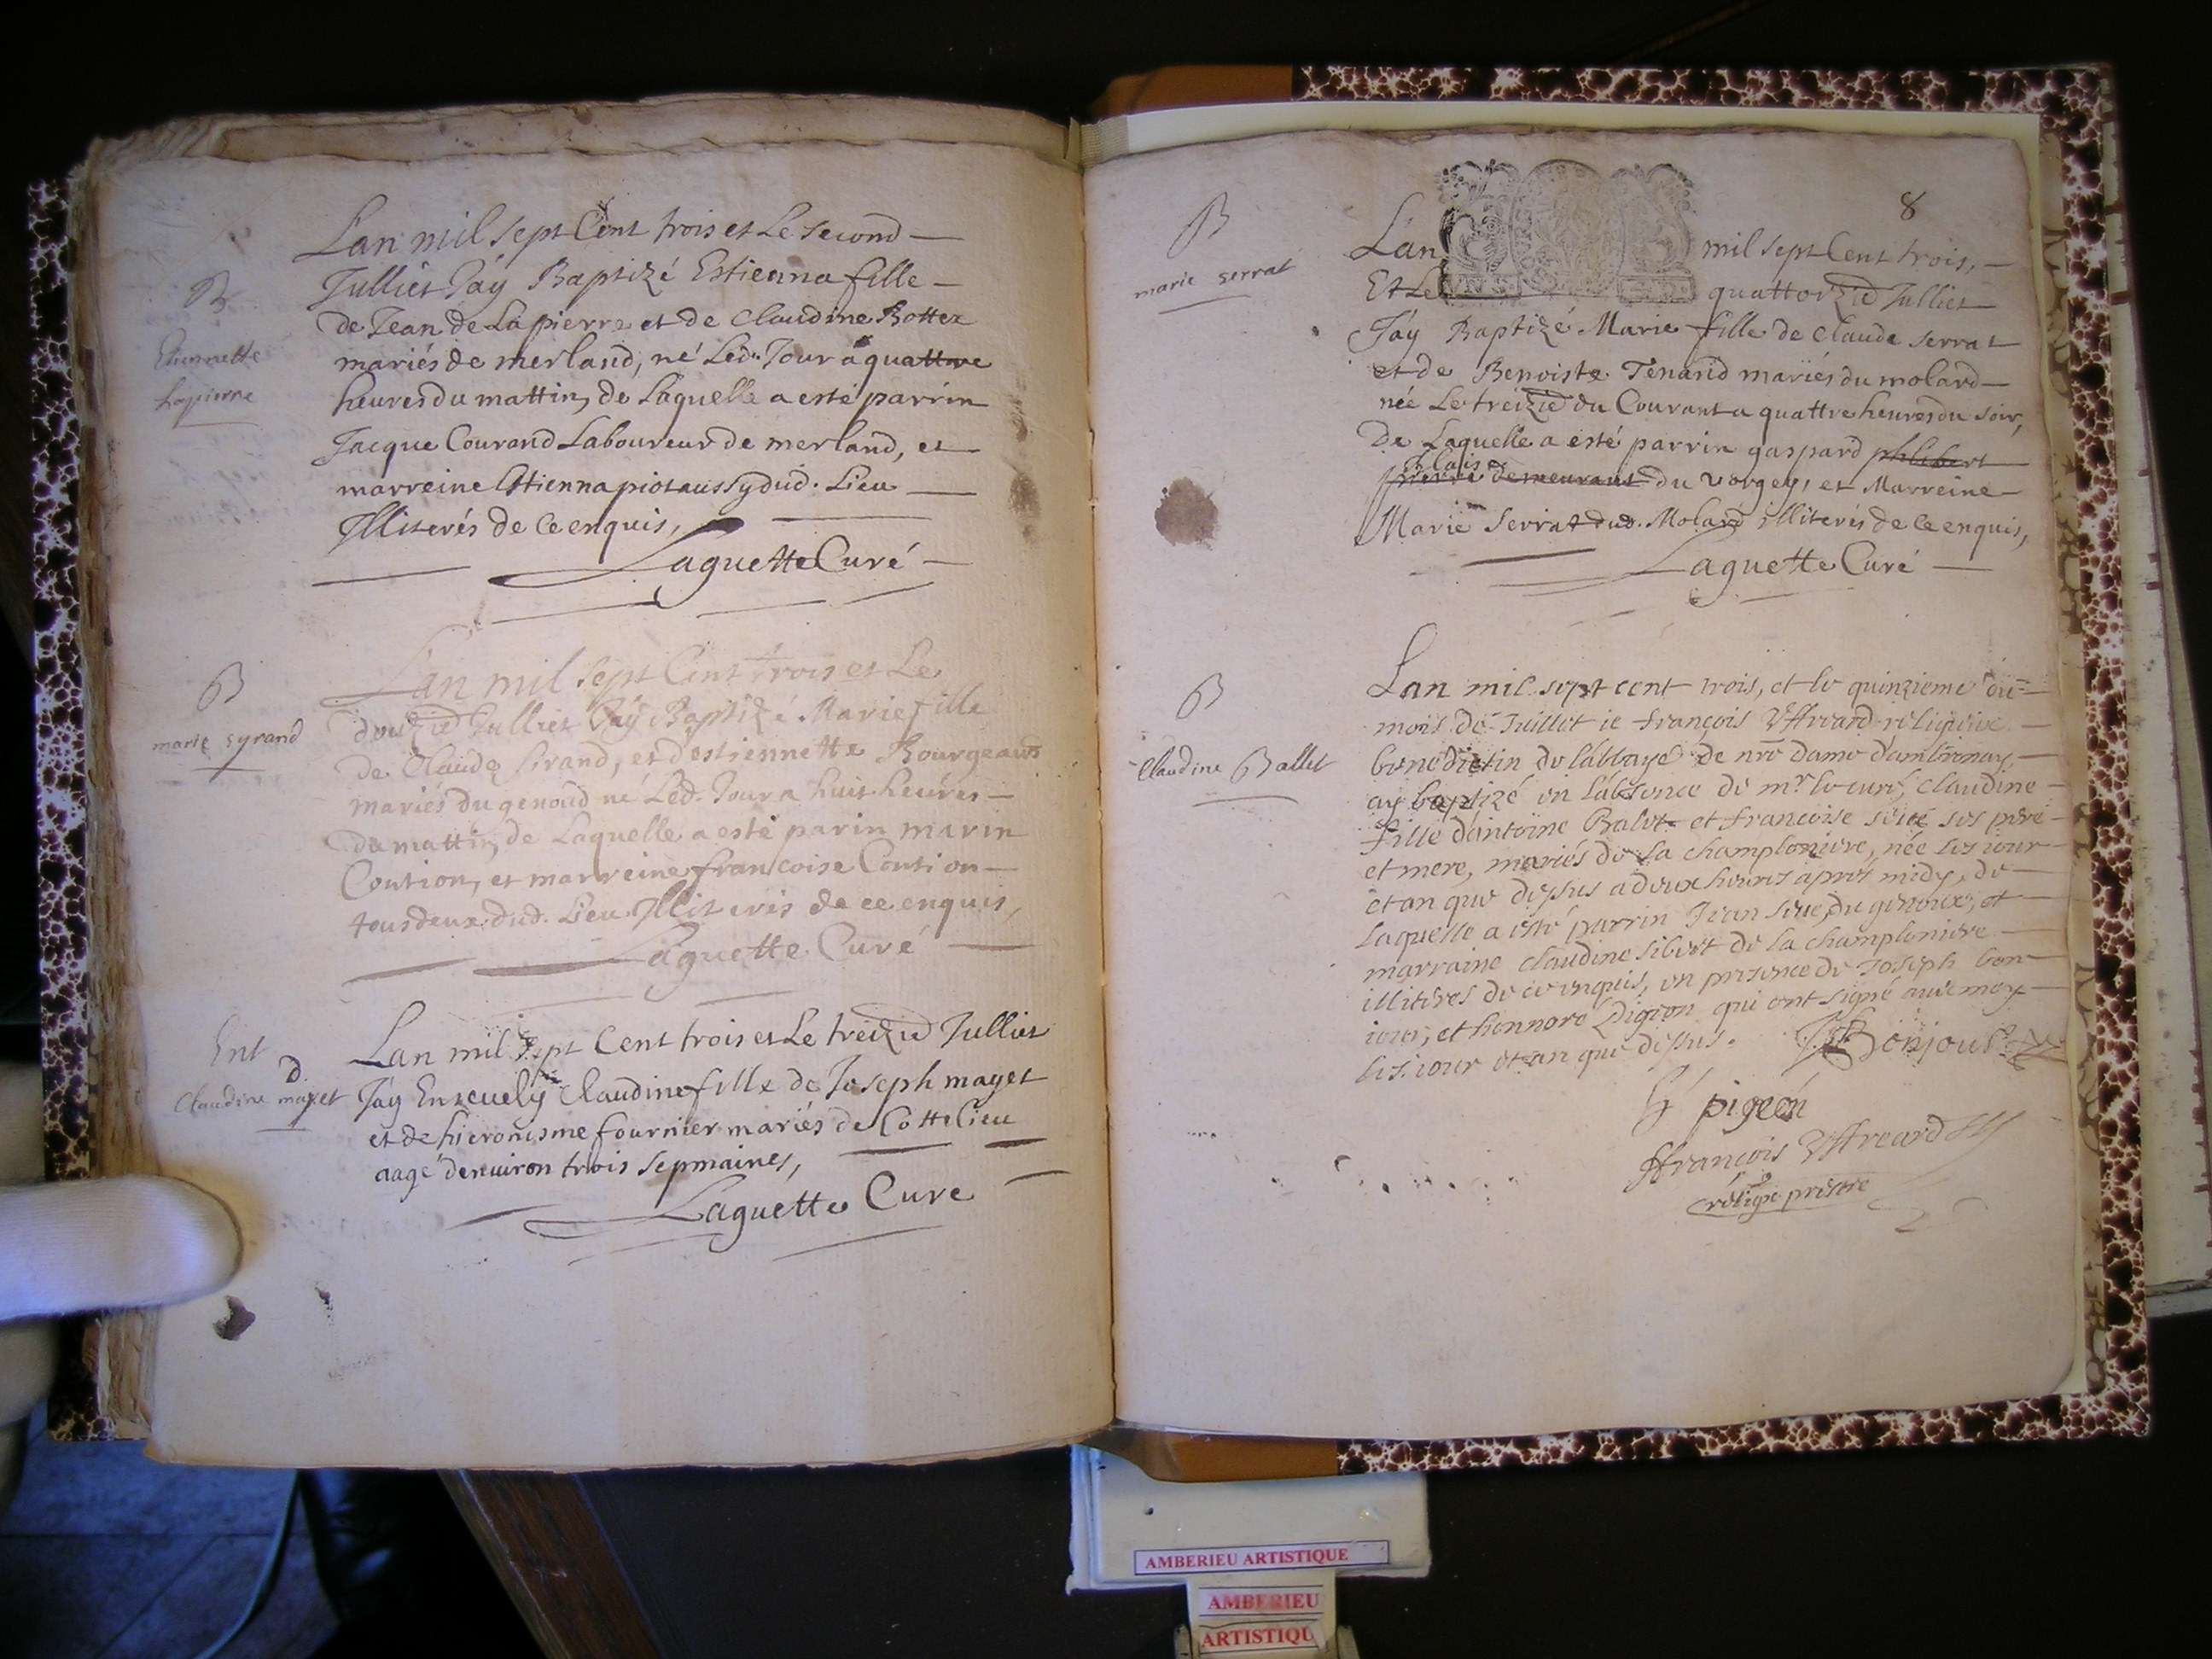 B
Etiennette
Lapierre
Lan mil sept Cent trois et Le second
Julliet J'ay Baptizé Estienna fille
de Jean de Lapierre et de Claudine Bottex
mariés de merland, né Led. Jour a quattre
heures du mattin, de Laquelle a esté parrin
Jacque Courand Laboureur de merland, et
marreine Estienna piot aussy dud. Lieu
Illiterés de ce enquis,
Laguette Curé
B
marie syrand
Lan mil sept Cent trois et Le
douzie Julliet J'ay Baptizé Marie fille
de Claude Sirand, et d'estiennette Bourgeaud
mariés du genoud né Led. Jour a huit heures
du mattin, de Laquelle a esté parin marin
Coution, et marreine francoise Coution
tous deux dud. Lieu Illiterés de ce enquis,
Laguette Curé
Ent
D
Claudine mayet
Lan mil sept Cent trois et Le treizie Julliet
J'ay Enseuely Claudine fille de Joseph mayet
et de hieronisme fournier mariés de Cottelieu
aagé denuiron trois sepmaines,
Laguette Curé
8
B
marie serrat
Lan mil sept Cent trois,
Et Le quattorzie Julliet
J'ay Baptizé Marie fille de Claude Serrat
et de Benoiste Tenand mariés du molard
née Le treizie du Courant a quattre heures du soir,
De Laquelle a esté parrin gaspard philibert
blaise
pierre demeurant du vorgey, et Marreine
Marie Serrat dud. Molard illiterés de ce enquis,
Laguette Curé
B
Claudine Ballet
Lan mil sept cent trois, et le quinzieme du
mois de Juillet ie françois Uffreard religieux
benedictin de l'abbaye de nre dame d'ambronay
ay baptizé en l'absence de mr le curé, Claudine
fille d'antoine Balet et francoise seue ses pere
et mere, mariés de la champloniere, née les iour
et an que dessus a deux heures apres midy, de
laquelle a esté parrin Jean seue du genoux, et
marraine claudine sibert de la champloniere
illiteres de ce enquis, en presence de Joseph bon
iour, et honnoré Pigeon qui ont signé auec moy
les iour et an que dessus. Bonjour
h pigeon
ffrançois Uffreard
religx prestre
AMBERIEU ARTISTIQUE
AMBERIEU
ARTISTIQU